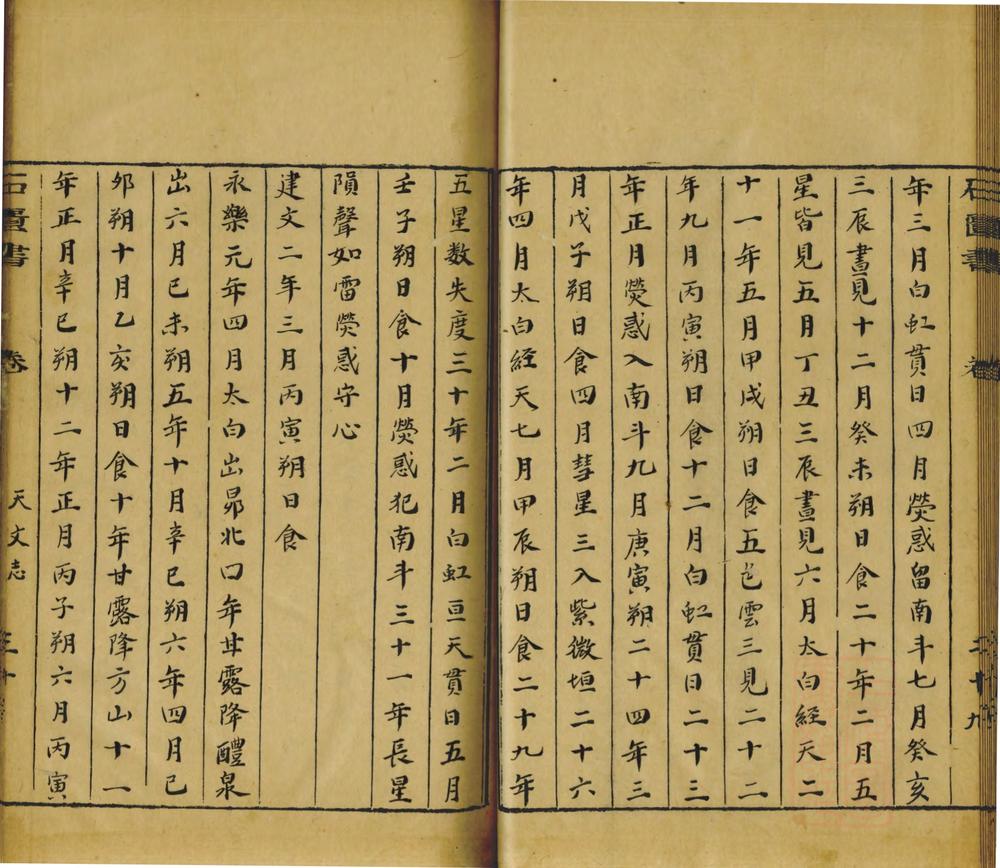 石匱書 卷 二十九
年三月白虹貫日四月熒惑留南斗七月癸亥
三辰晝見十二月癸未朔日食二十年二月五
星皆見五月丁丑三辰晝見六月太白經天二
十一年五月甲戌朔日食五色雲三見二十二
年九月丙寅朔日食十二月白虹貫日二十三
年正月熒惑入南斗九月庚寅朔二十四年三
月戊子朔日食四月彗星三入紫微垣二十六
年四月太白經天七月甲辰朔日食二十九年
五星数失度三十年二月白虹亘天貫日五月
壬子朔日食十月熒惑犯南斗三十一年長星
隕聲如雷熒惑守心
建文二年三月丙寅朔日食
永樂元年四月太白出昴北口年甘露降醴泉
出六月己未朔五年十月辛巳朔六年四月己
夘朔十月乙亥朔日食十年甘露降方山十一
年正月辛巳朔十二年正月丙子朔六月丙寅
石匱書 卷 天文志 三十